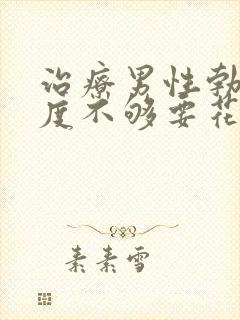 治疗男性勃
度不够要花
素素雪